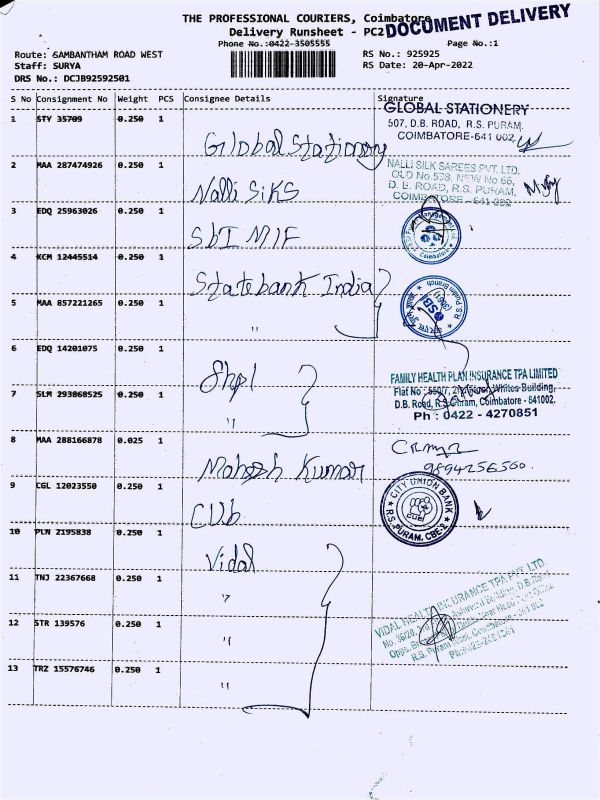 THE PROFESSIONAL COURIERS, Coimbatore
DOCUMENT DELIVERY
Delivery Runsheet - PC2
Phone No.:0422-3505555
Page No.:1
Route: GAMBANTHAM ROAD WEST
RS No.: 925925
Staff: SURYA
RS Date: 20-Apr-2022
DRS No.: DCJB92592501
S No Consignment No Weight PCS Consignee Details Signature
1 STY 35709 0.250 1 Global Stationery
GLOBAL STATIONERY
507, D.B. ROAD, R.S. PURAM,
COIMBATORE-641 002
2 MAA 287474926 0.250 1 Nalli SiKS
NALLI SILK SAREES PVT. LTD.
OLD No.538, NEW No 66,
D. B. ROAD, R.S. PURAM,
COIMBATORE - 641 002
3 EDQ 25963026 0.250 1 SbI MIF
Coimbatore
4 KCM 12445514 0.250 1 State bank India
5 MAA 857221265 0.250 1 "
SBI
R.S. Puram Branch
6 EDQ 14201075 0.250 1 Shpl
FAMILY HEALTH PLAN INSURANCE TPA LIMITED
Whites Building,
D.B. Road, R.S. Puram, Coimbatore - 641002.
Ph : 0422 - 4270851
7 SLM 293868525 0.250 1 "
8 MAA 288166878 0.025 1 Mahesh Kumar
9894256560.
9 CGL 12023550 0.250 1 CUb
CITY UNION BANK
R.S. PURAM, CBE-2
10 PLN 2195838 0.250 1 Vidal
11 TNJ 22367668 0.250 1 "
VIDAL HEALTH INSURANCE TPA PVT. LTD.
12 STR 139576 0.250 1 "
13 TRZ 15576746 0.250 1 "